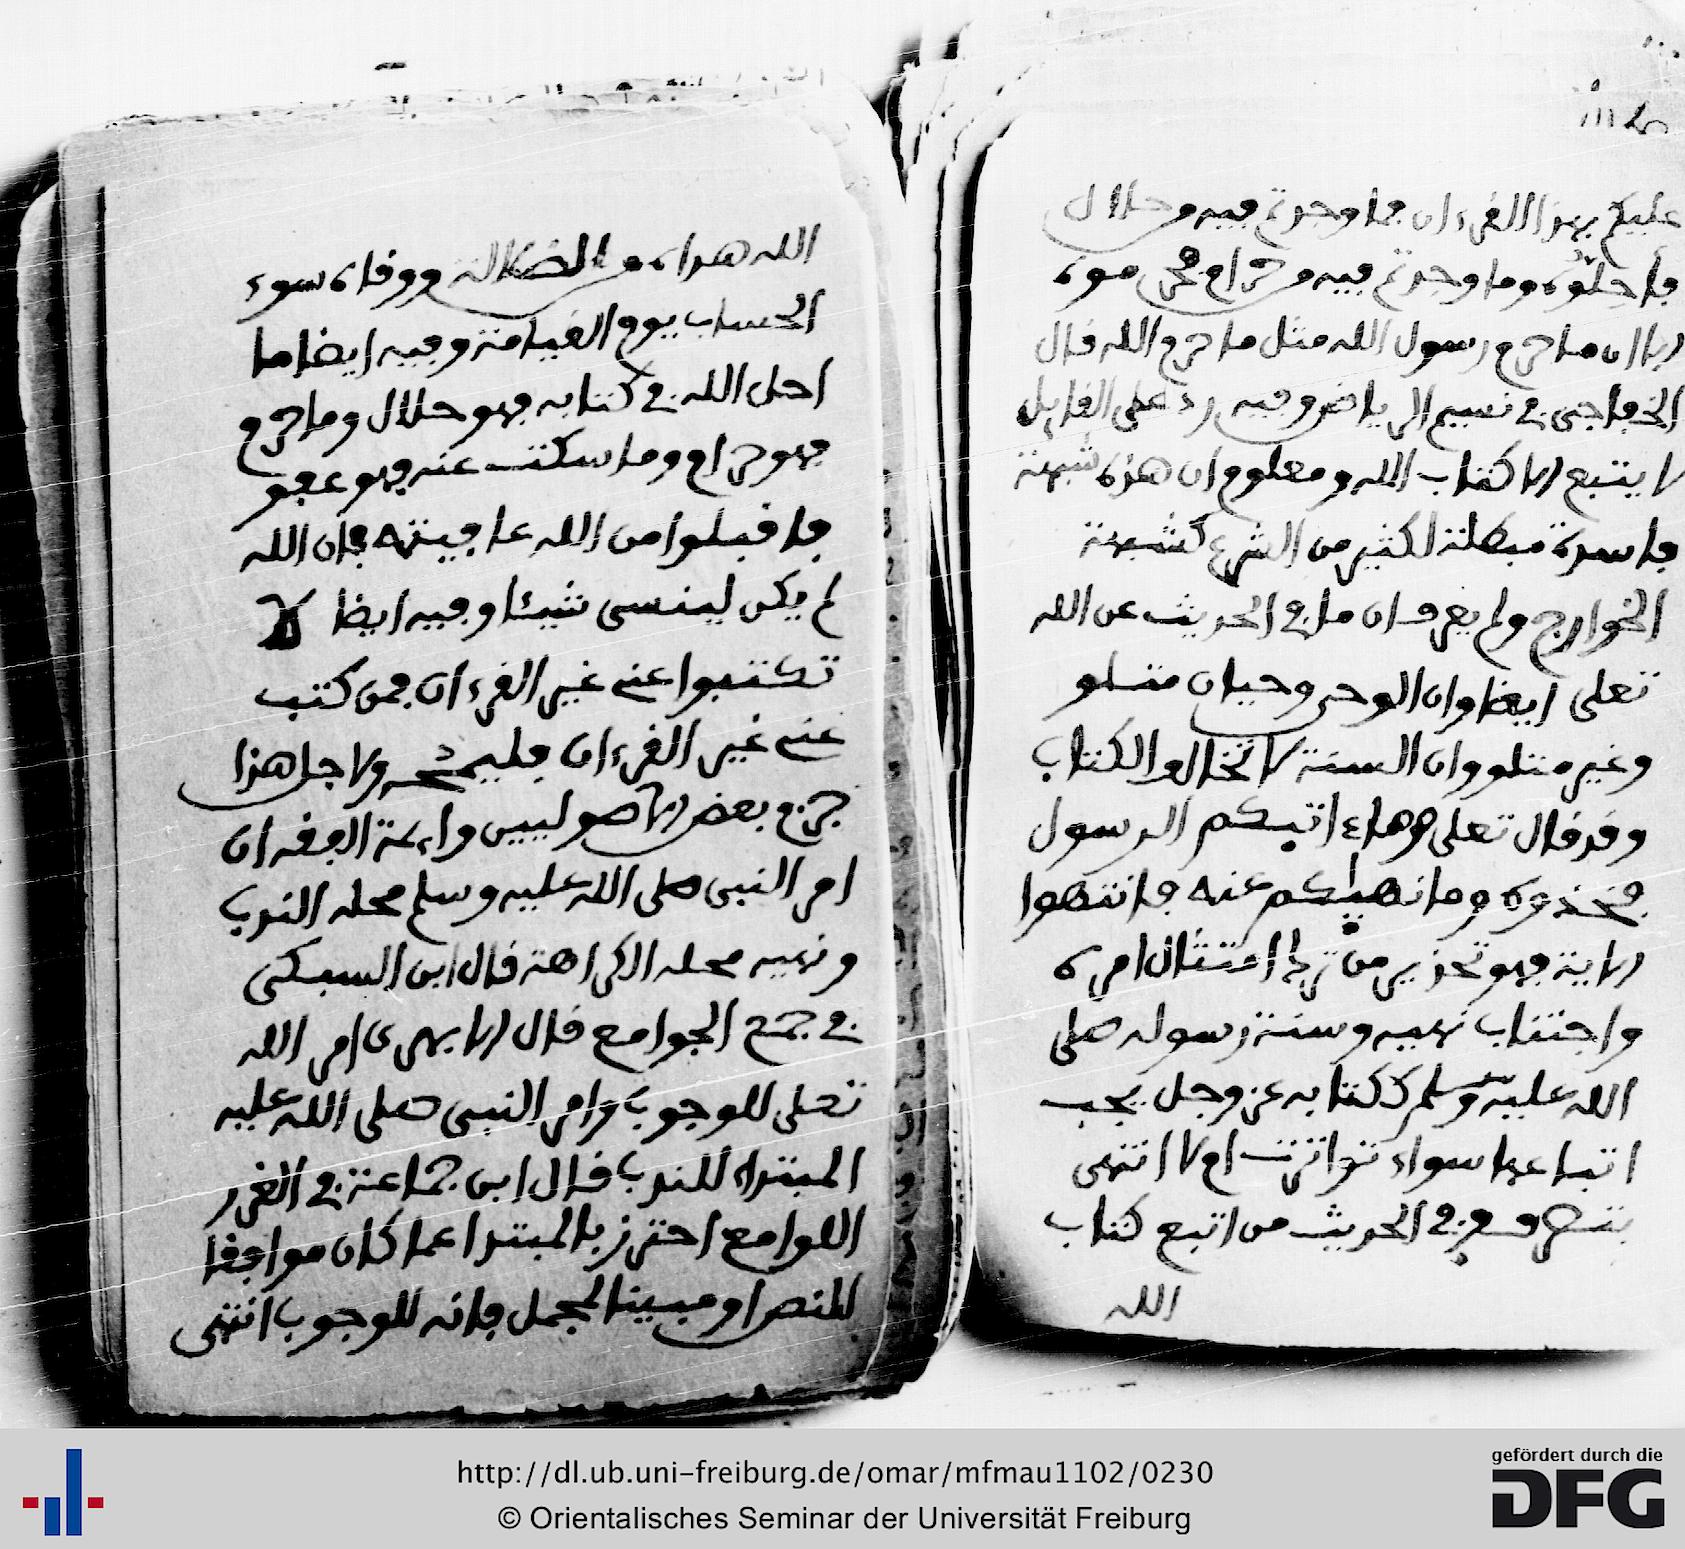 عليكم بهذا القرءان فما وجدتم فيه من حلال
فاحلوه وما وجدتم فيه من حرام فحرموه
الا ان ما حرم رسول الله مثل ما حرم الله قال
الخفاجي في نسيم الرياض وفيه رد على القايل
لا يتبع الا كتاب الله ومعلوم ان هذه شبهة
فاسدة مبطلة لكثير من الشرع كشبهة
الخوارج ولم يعرف ان ما في الحديث عن الله
تعلى ايضا وان الوحي وحيان متلو
وغير متلو وان السنة لا تخالف الكتاب
وقد قال تعلى وما ءاتيكم الرسول
فخذوه وما نهيكم عنه فانتهوا
الاية فهو تحذير من ترك امتثال امره
واجتناب نهيه وسنة رسوله صلى
الله عليه وسلم ككتابه عز وجل يجب
اتباعها سواء تواترت ام لا انتهى
في الحديث من اتبع كتاب
الله
الله هداه من الضلالة ووقاه سوء
الحساب يوم القيامة وفيه ايضا ما
احل الله في كتابه فهو حلال وما حرم
فهو حرام وما سكت عنه فهو عفو
فاقبلوا من الله عافيته فان الله
لم يكن لينسى شيئا وفيه ايضا لا
تكتبوا عني غير القرءان فمن كتب
عني غير القرءان فليمحه ولاجل هذا
جزم بعض الاصوليين وايمة الفقه ان
امر النبي صلى الله عليه وسلم محله الندب
ونهيه محله الكراهة قال ابن السبكي
في جمع الجوامع قال الابهري امر الله
تعلى للوجوب وامر النبي صلى الله عليه
المبتدا للندب قال ابن جماعة في الغرر
اللوامع احترز بالمبتدا عما كان موافقا
للنص او مبينا لمجمل فانه للوجوب انتهى
http://dl.ub.uni-freiburg.de/omar/mfmau1102/0230
© Orientalisches Seminar der Universität Freiburg
gefördert durch die
DFG